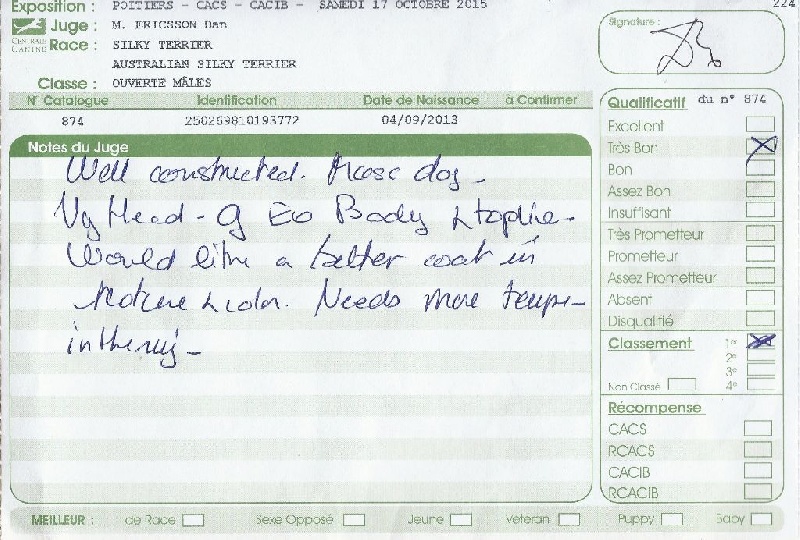 Exposition : POITIERS - CACS - CACIB - SAMEDI 17 OCTOBRE 2015
224
Juge : M. ERICSSON Dan
CENTRALE CANINE
Race : SILKY TERRIER
AUSTRALIAN SILKY TERRIER
Classe : OUVERTE MÂLES
Signature :
N° Catalogue Identification Date de Naissance à Confirmer
874 250269810193772 04/09/2013
Notes du Juge
Well constructed. dog -
Vg Head - g Body & topline -
Would like a better coat in
& color. Needs more tempe-
in the ring -
Qualificatif du n° 874
Excellent
Très Bon
Bon
Assez Bon
Insuffisant
Très Prometteur
Prometteur
Assez Prometteur
Absent
Disqualifié
Classement 1er
2e
3e
Non Classé 4e
Récompense
CACS
RCACS
CACIB
RCACIB
MEILLEUR : de Race Sexe Opposé Jeune Veteran Puppy Baby